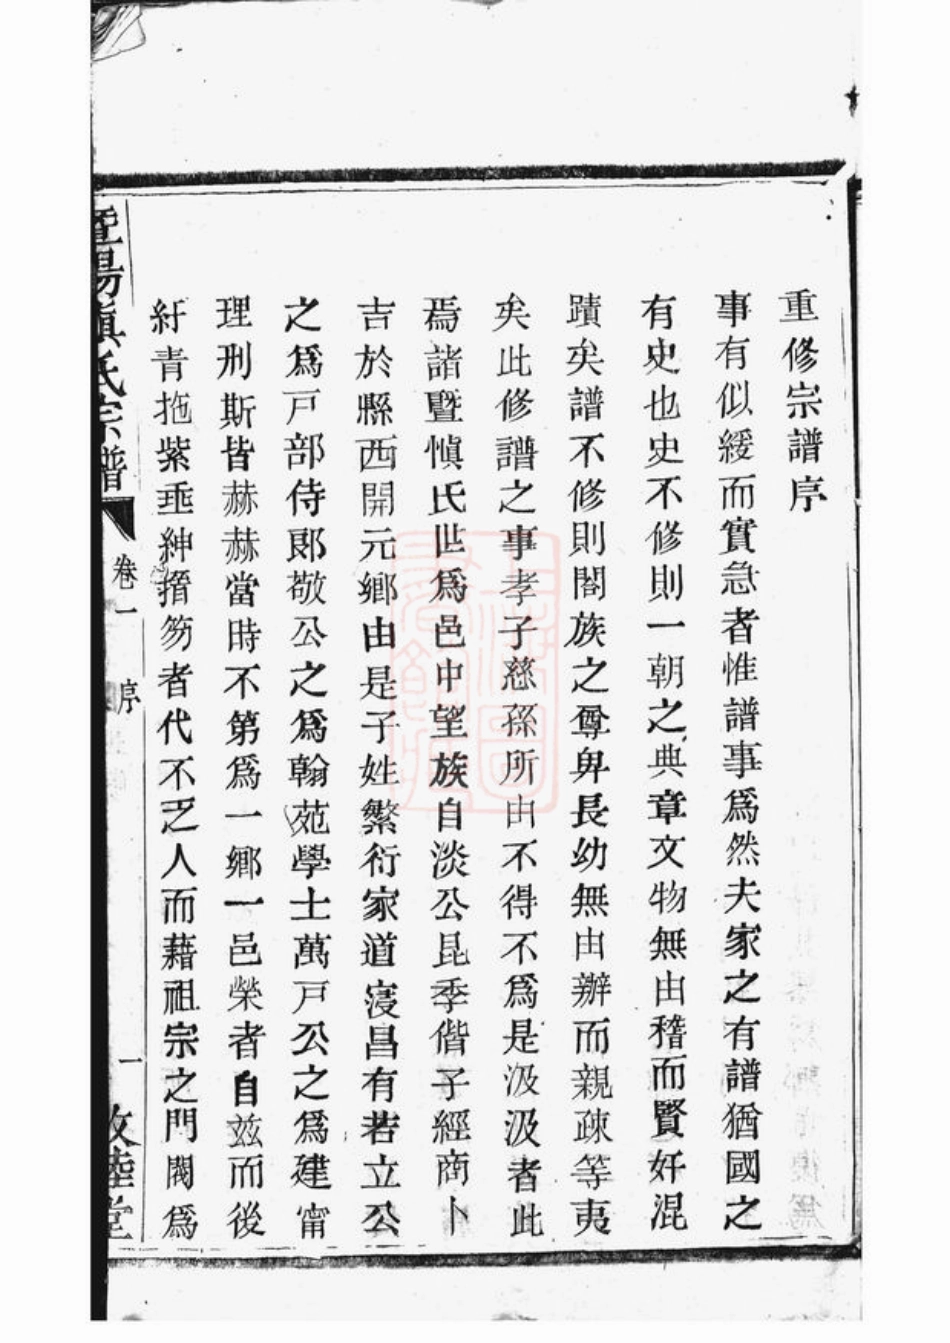 重修宗譜序
事有似緩而實急者惟譜事爲然夫家之有譜猶國之
有史也史不修則一朝之典章文物無由稽而賢奸混
蹟矣譜不修則闔族之尊卑長幼無由辦而親疎等夷
矣此修譜之事孝子慈孫所由不得不爲是汲汲者此
焉諸暨愼氏世爲邑中望族自淡公昆季偕子經商卜
吉於縣西開元鄉由是子姓繁衍家道寖昌有若立公
之爲戸部侍郎敬公之爲翰苑學士萬戸公之爲建甯
理刑斯皆赫赫當時不第爲一鄉一邑榮者自玆而後
紆青拖紫垂紳搢笏者代不乏人而藉祖宗之門閥爲
暨陽愼氏宗譜 卷一 序 一 敦睦堂